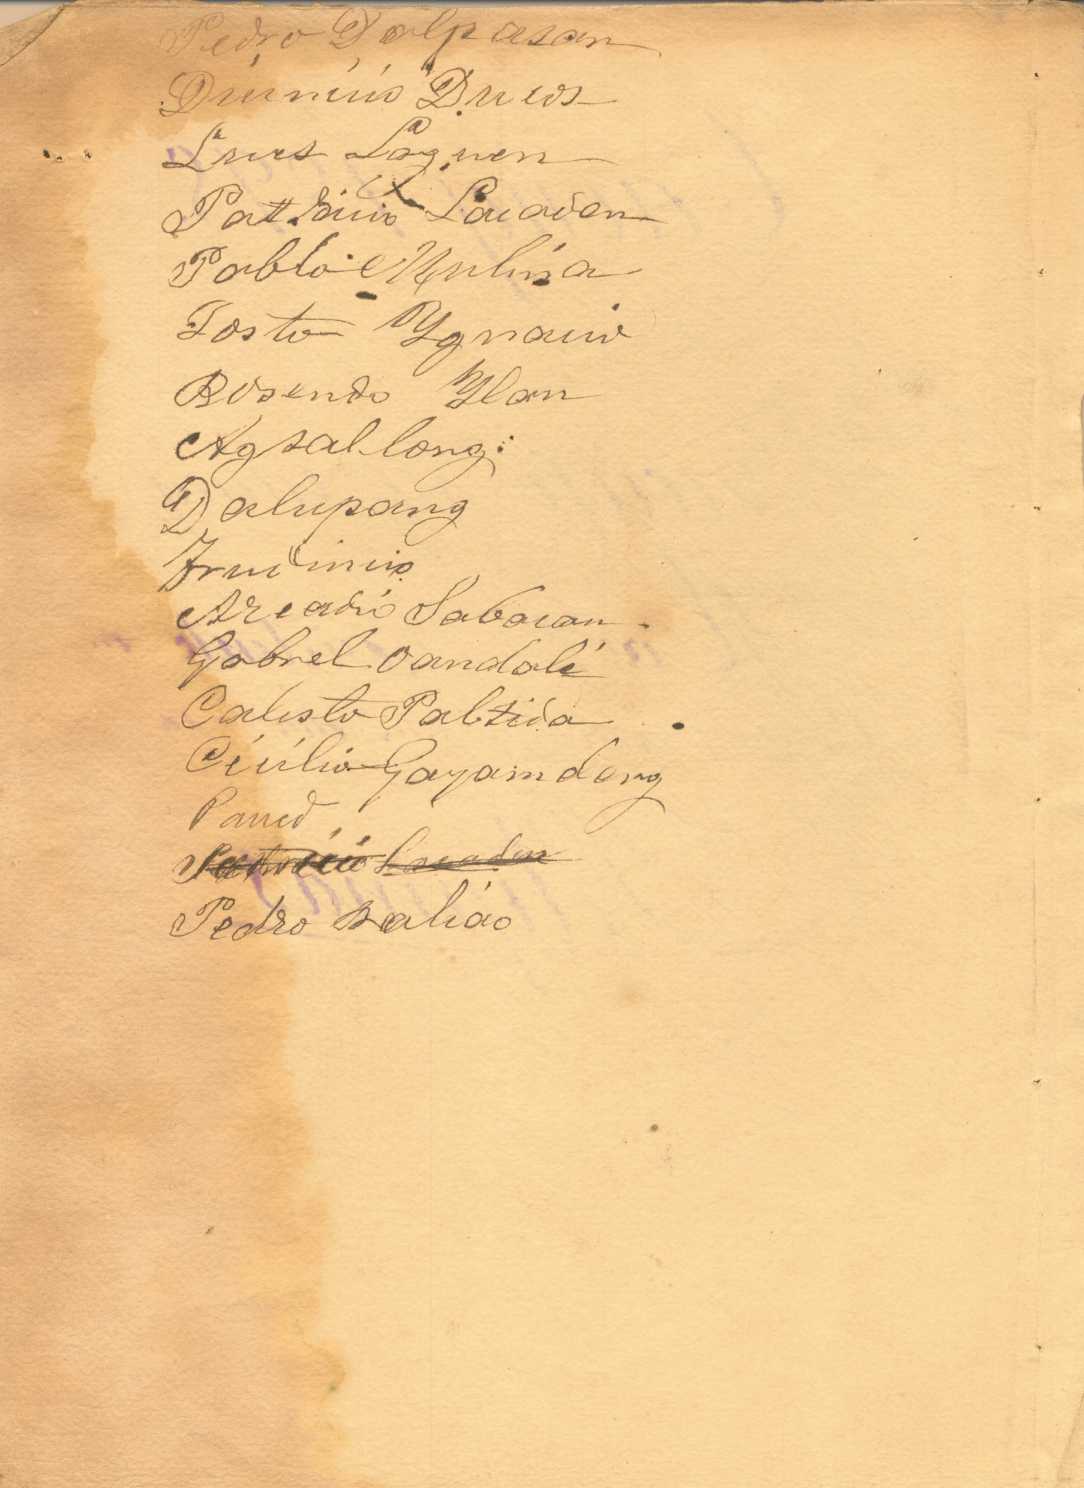 Pedro Dalpasan
Diunicio Bucos
Lues Laguen
Patricio Lacaden
Pablo Mulina
Tosto Ygnacio
Rosendo Ylan
Agsallong:
Dalupang
Frucinio
Arcadio Sabacan.
Gabriel Dandale
Calisto Partida
Cicilio Gayamdang
Pared
Patricio Lacaden
Pedro Salicio